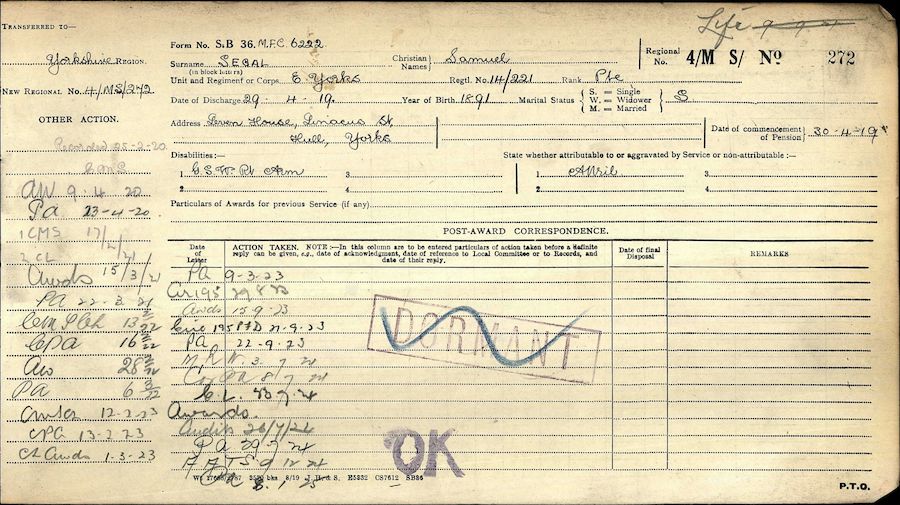 TRANSFERRED TO—
Yorkshire REGION.
NEW REGIONAL No. 4/MS/272
OTHER ACTION.
Recorded 25-2-20
AW 9.4.20
PA 23-4-20
1 CMS 17/2/21
2 CL
Awds 15/3/21
PA 22-3-21
CPA 16
AW 28
PA 6
12-2-23
CPA 13-2-23
CL Awds 1-3-23
Life
Form No. S.B 36. M.F.C. 6222
Surname SEGAL
(in block letters)
Christian Names} Samuel
Regional No. 4/M S/ No 272
Unit and Regiment or Corps. E. Yorks
Regtl. No. 14/221 Rank Pte
Date of Discharge 29 - 4 - 19.
Year of Birth 1891
Marital Status { S. = Single W. = Widower M. = Married } S
Address House, St,
Hull, Yorks
Date of commencement of Pension} 30-4-19
Disabilities:—
State whether attributable to or aggravated by Service or non-attributable:—
1. G.S.W. Rt Arm 3. 1. 3.
2. 4. 2. 4.
Particulars of Awards for previous Service (if any)
POST-AWARD CORRESPONDENCE.
Date of Letter
ACTION TAKEN. NOTE:—In this column are to be entered particulars of action taken before a definite reply can be given, e.g., date of acknowledgment, date of reference to Local Committee or to Records, and date of their reply.
Date of final Disposal
REMARKS
PA 9-3-23
Cir 195 29 8 23
Awds 15-9-23
Circ 195 21-9-23
PA 22-9-23
3.7.24
8/7/24
C.L.
Awards.
Audit 26/7/24
PA 29.7.24
9 12 24
8.1.25
DORMANT
OK
8/19 E5332 CS7612 SB36
P.T.O.